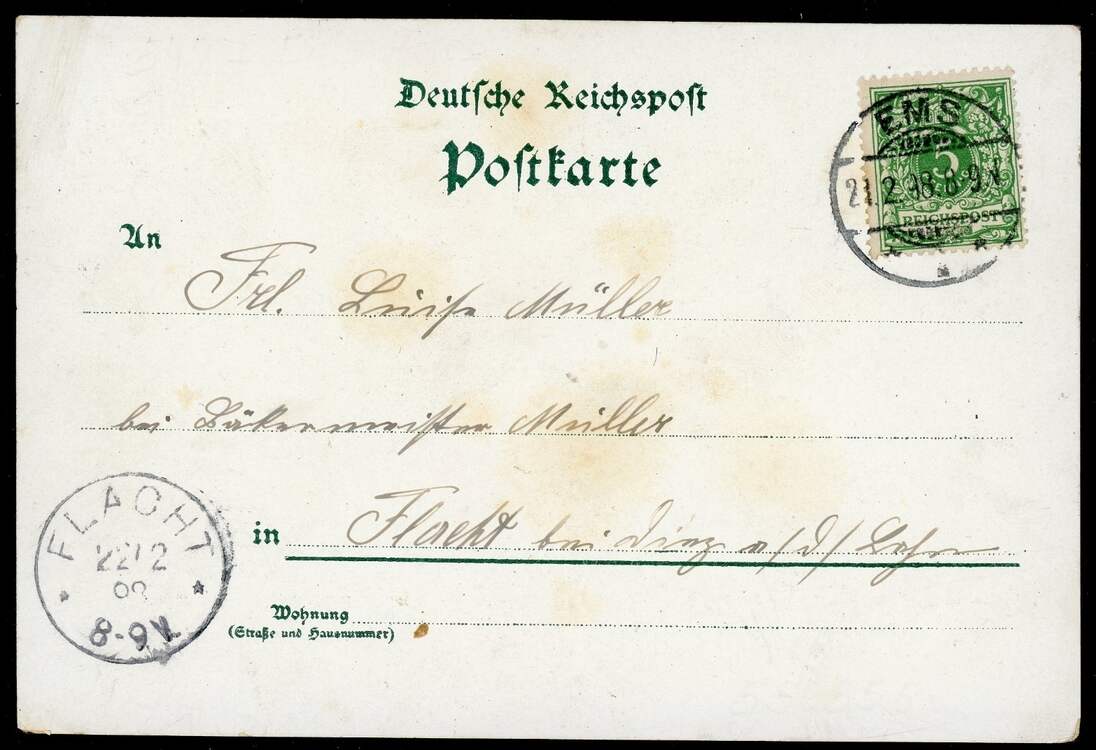 Deutsche Reichspost
Postkarte
EMS
21.2.98.8-9V.
5
REICHSPOST
An
Frl. Luise Müller
bei Bäkermeister Müller
in Flacht bei Diez a/d/ Lahn
FLACHT
22/2
98
8-9V.
Wohnung
(Straße und Hausnummer)